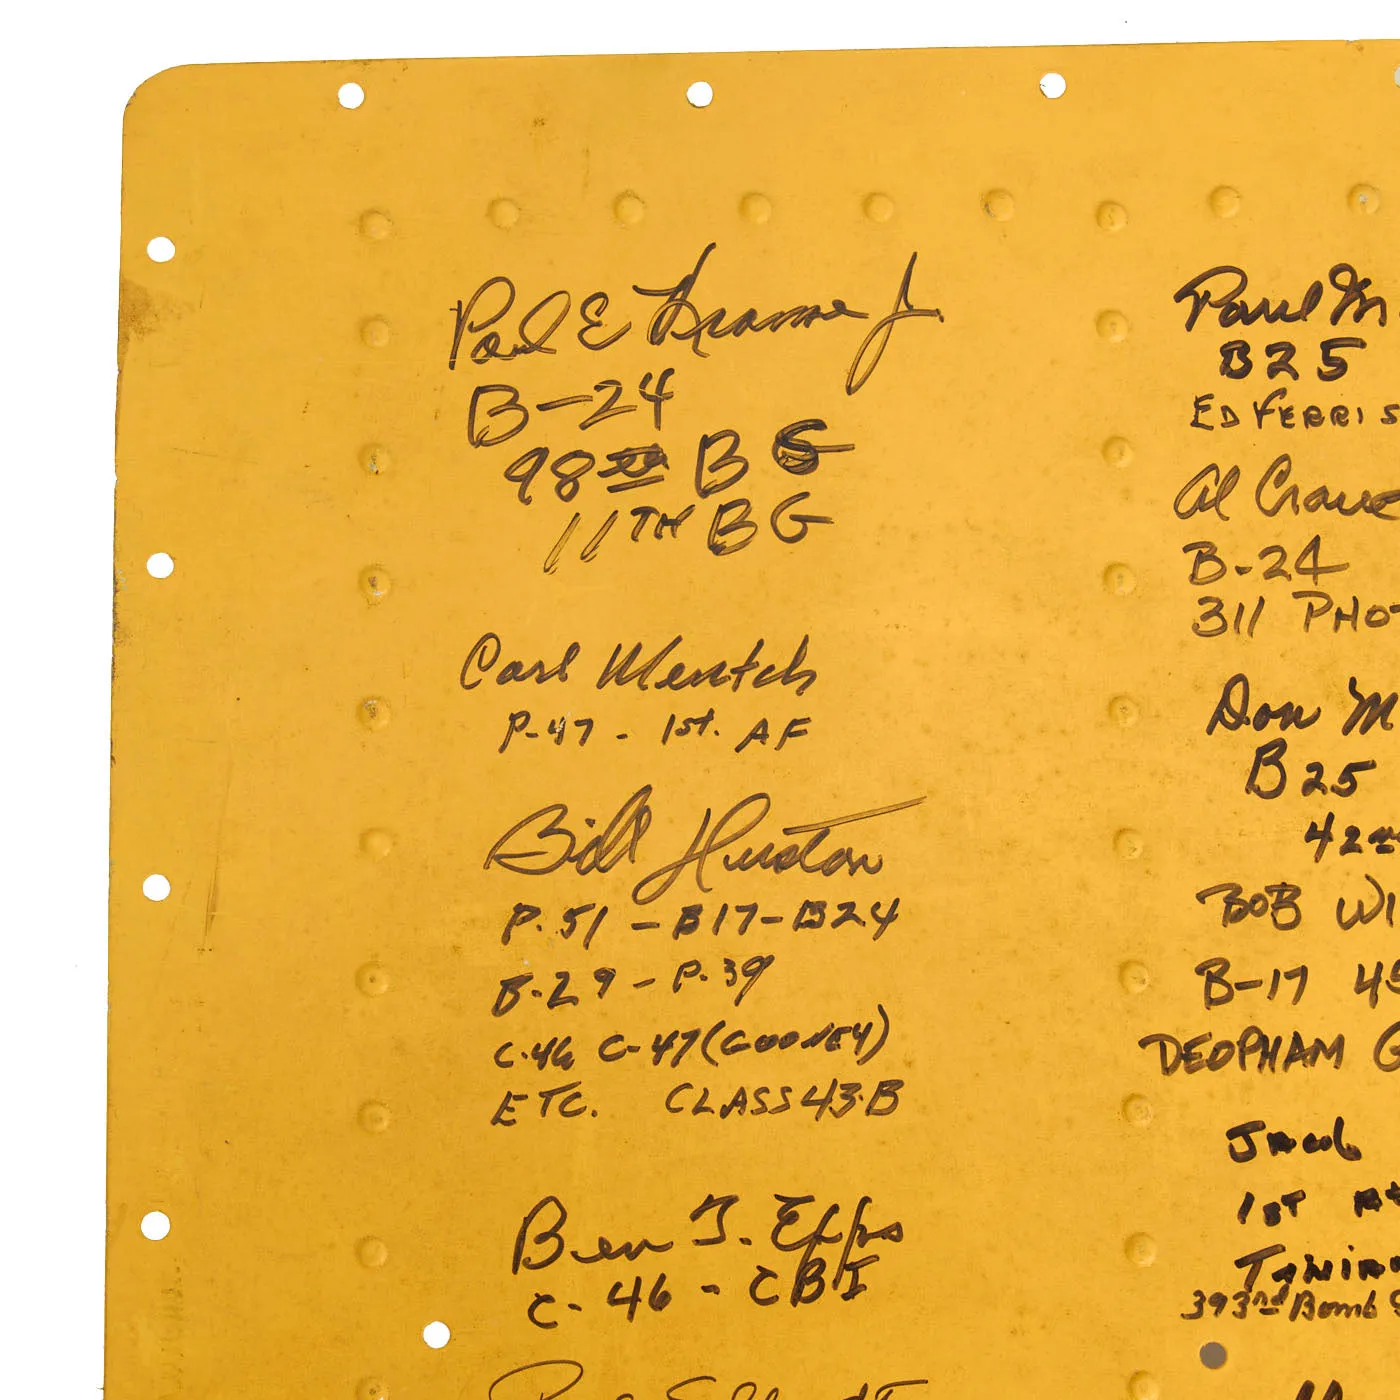 Paul E Kramme Jr.
B-24
98th BG
11TH BG
Carl Mentch
P-47 - 1st. AF
Bill Huston
P.51 - B17-B24
B.29 - P.39
C.46 C-47 (GOONEY)
ETC. CLASS 43.B
Ben T. Epps
C-46 - CBI
Paul
B25
ED FERRIS
Al
B-24
311 PHO
Don M
B25
42nd
BOB WI
B-17 45
DEOPHAM G
Jacob
1ST
393rd Bomb S